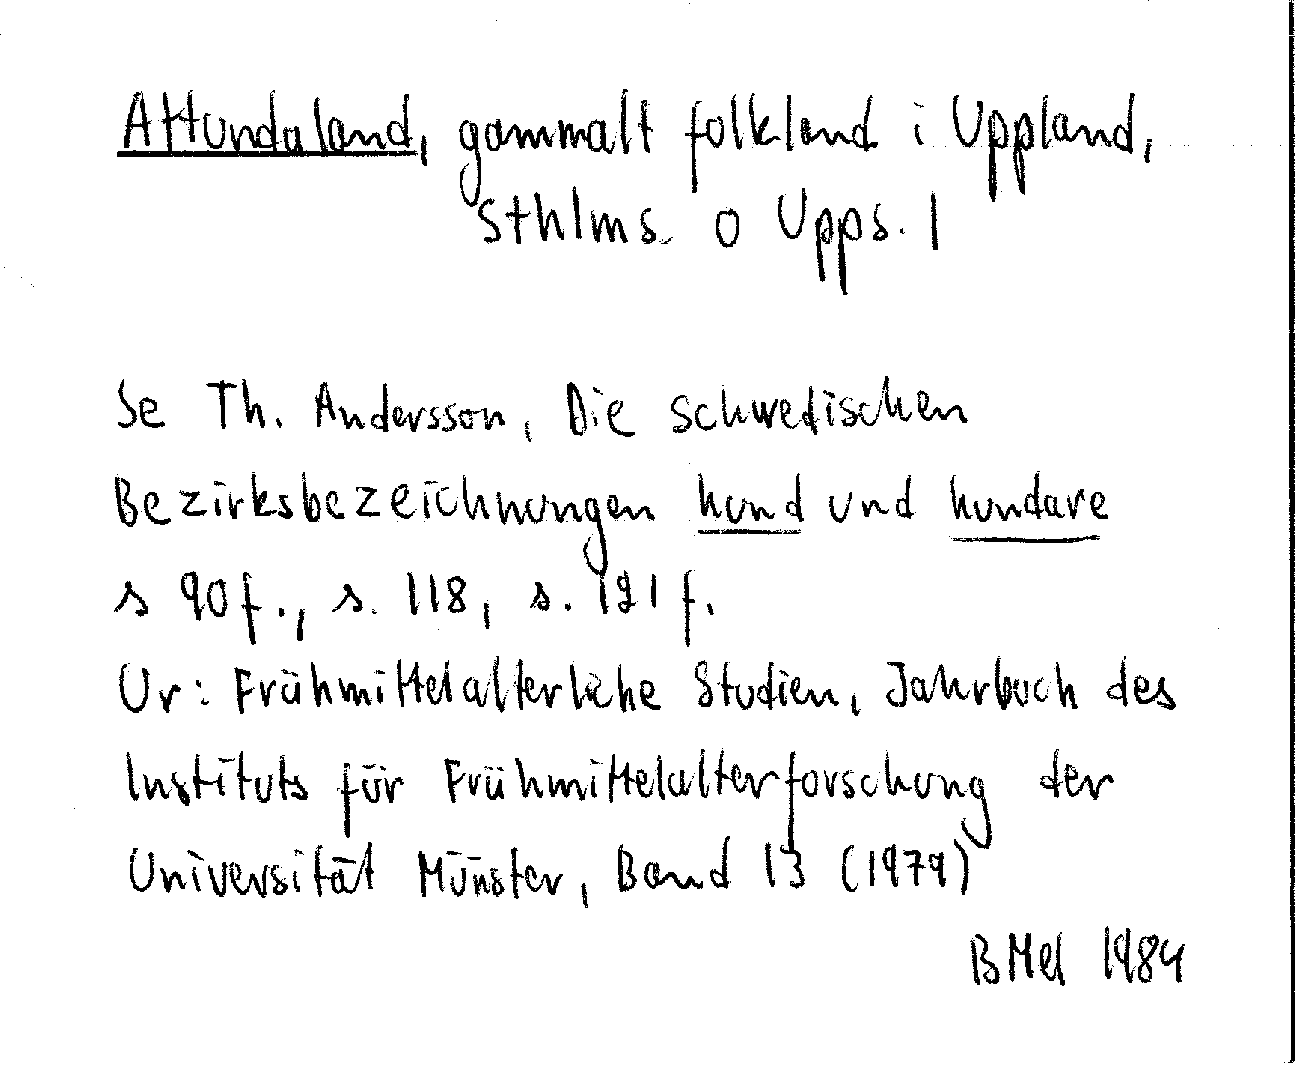 Attundaland, gammalt folkland i Uppland,
Sthlms. o Upps. l
Se Th. Andersson, Die schwedischen
Bezirksbezeichnungen hund und hundare
s 90f., s. 118, s. 121 f.
Ur: Frühmittelalterliche Studien, Jahrbuch des
Instituts für Frühmittelalterforschung der
Universität Münster, Band 13 (1979)
BMel 1984